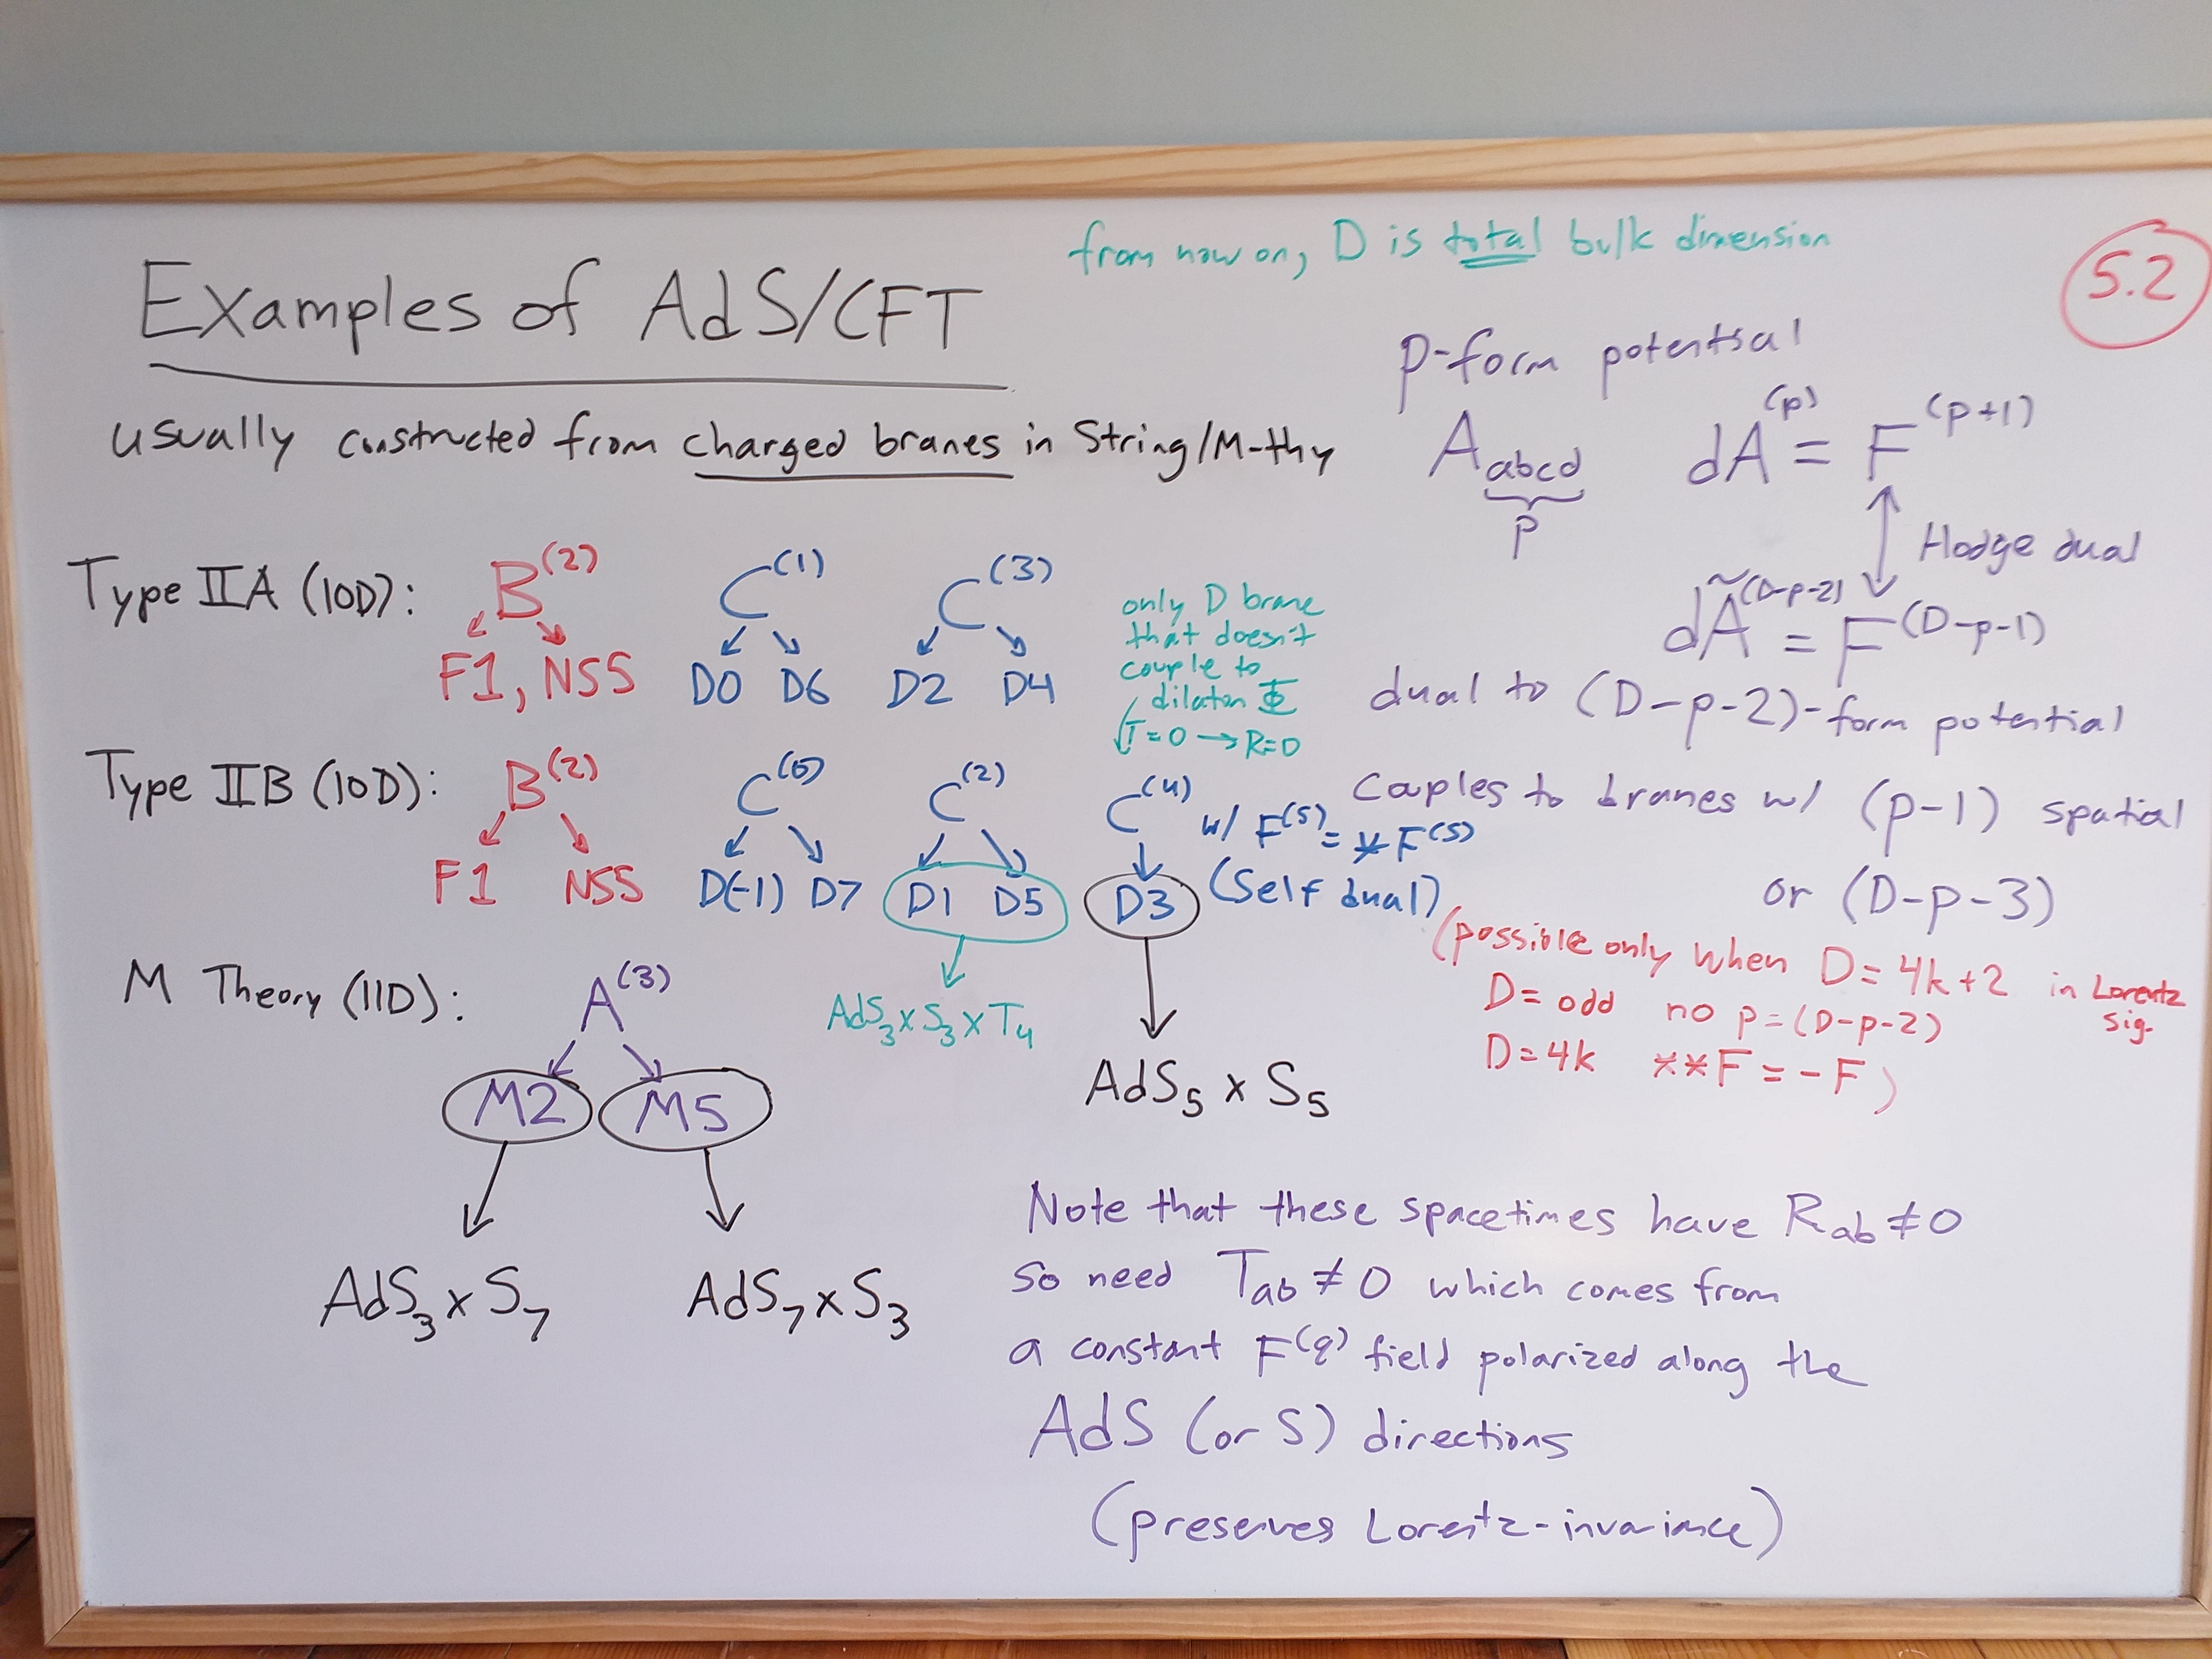 from now on, D is total bulk dimension
5.2
Examples of AdS/CFT
usually constructed from charged branes in String/M-thy
Type IIA (10D): B^(2) C^(1) C^(3)
F1, NS5 D0 D6 D2 D4
only D brane
that doesn't
couple to
dilaton Φ
T=0 → R=0
Type IIB (10D): B^(2) C^(0) C^(2) C^(4) w/ F^(5) = *F^(5)
F1 NS5 D(-1) D7 D1 D5 D3 (Self dual)
AdS_3 x S_3 x T_4
AdS_5 x S_5
M Theory (11D): A^(3)
M2 M5
AdS_3 x S_7 AdS_7 x S_3
p-form potential
A_abcd dA^(p) = F^(p+1)
p
Hodge dual
dÃ^(D-p-2) = F^(D-p-1)
dual to (D-p-2)-form potential
couples to branes w/ (p-1) spatial
or (D-p-3)
(possible only when D=4k+2 in Lorentz
sig.
D=odd no p=(D-p-2)
D=4k **F=-F)
Note that these spacetimes have R_ab ≠ 0
so need T_ab ≠ 0 which comes from
a constant F^(q) field polarized along the
AdS (or S) directions
(preserves Lorentz-invariance)